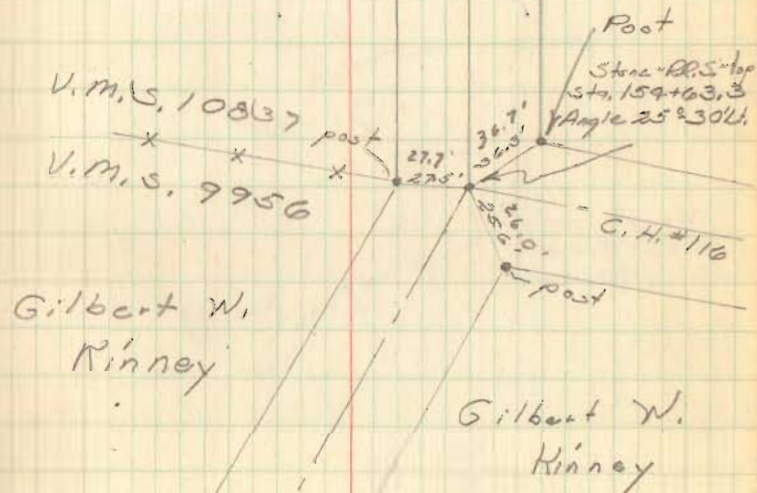 Post
Stone-R.R.S-top
Sta. 154+63.3
Angle 25°30'Lt.
V.M.S. 10837
post
36.7'
36.3'
27.7'
27.5'
V.M.S. 9956
26.0'
25.6'
C.H.#116
post
Gilbert W.
Kinney
Gilbert W.
Kinney